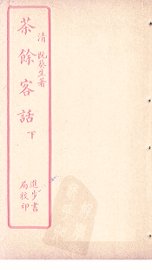 清 阮葵生著
茶餘客話 下
進步書
局校印